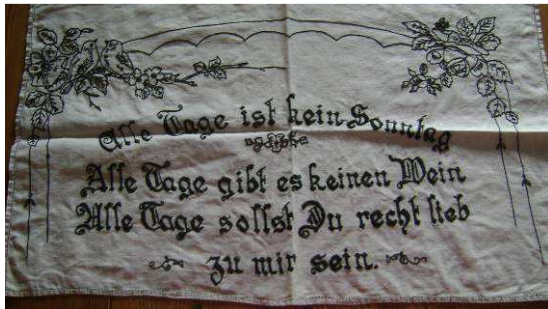 Alle Tage ist kein Sonntag
Alle Tage gibt es keinen Wein
Alle Tage sollst Du recht lieb
zu mir sein.